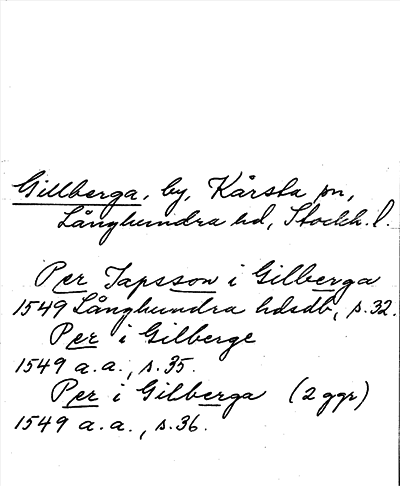 Gillberga, by, Kårsta sn,
Långhundra hd, Stockh. l.
Per Japsson i Gilberga
1549 Långhundra hdsdb, s. 32.
Per i Gilberge
1549 a. a., s. 35.
Per i Gilberga (2 ggr)
1549 a. a., s. 36.